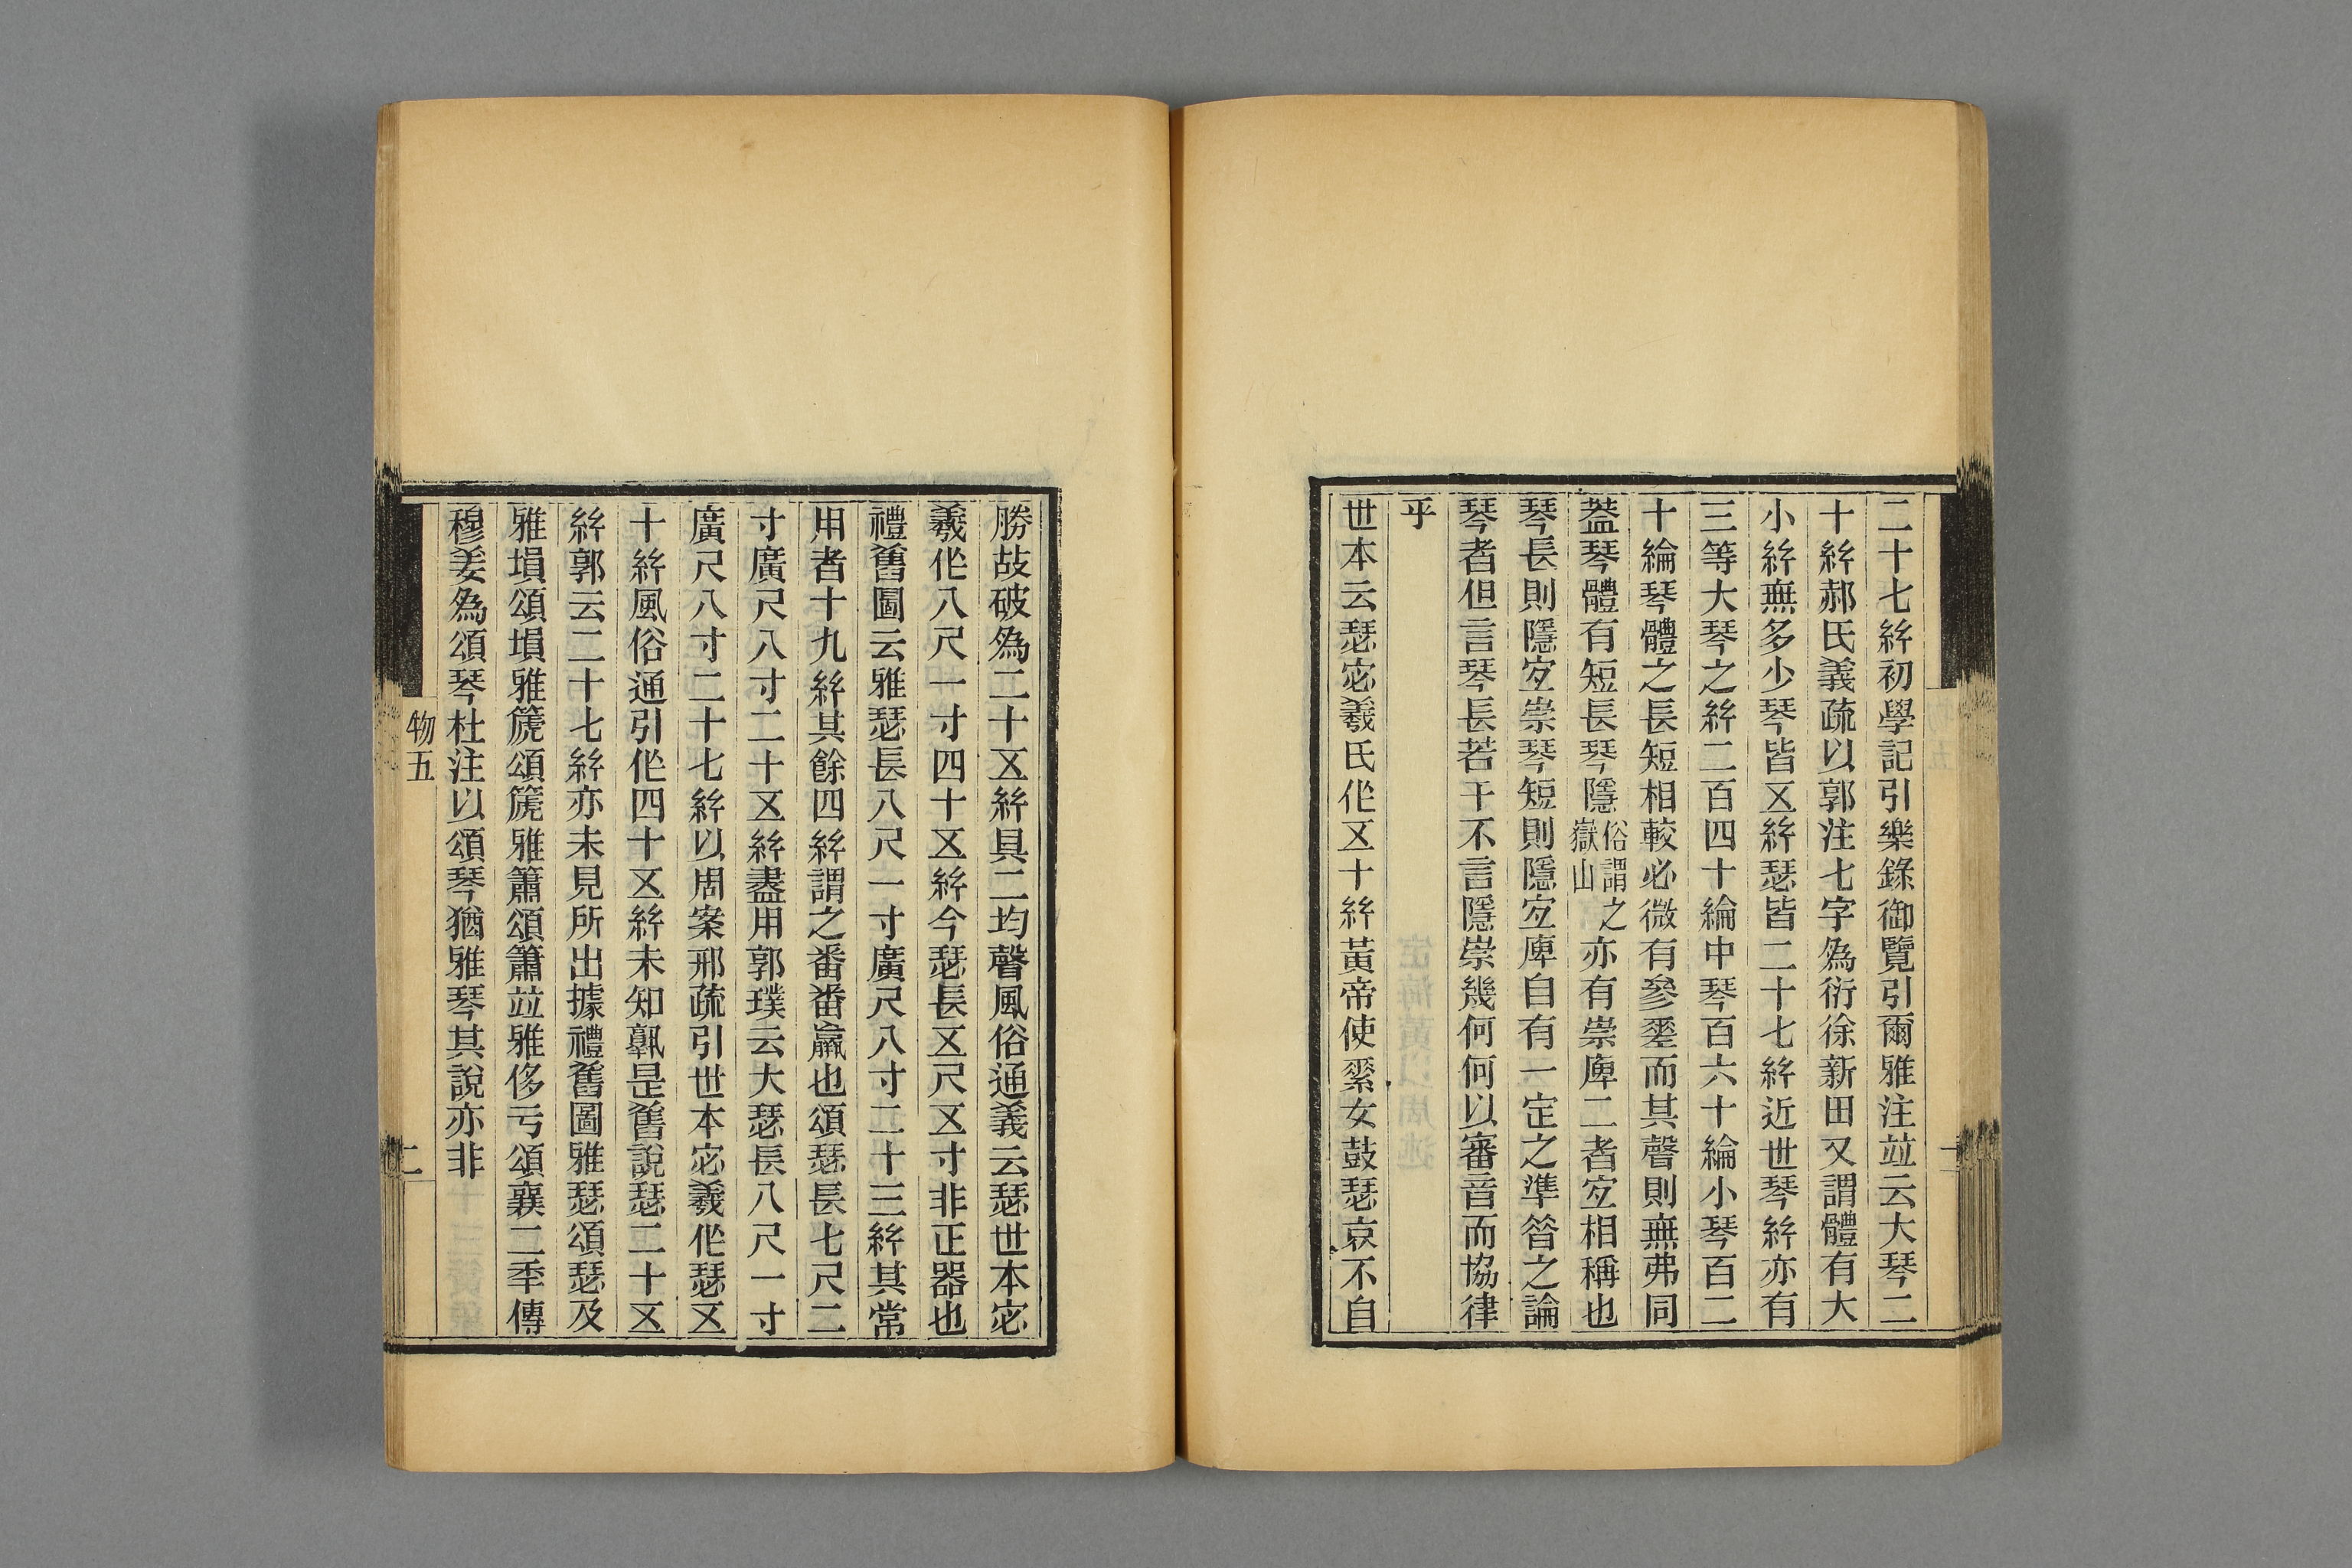 二十七絲初學記引樂錄御覽引爾雅注竝云大琴二
十絲郝氏義疏以郭注七字為衍徐新田又謂體有大
小絲無多少琴皆㐅絲瑟皆二十七絲近世琴絲亦有
三等大琴之絲二百四十綸中琴百六十綸小琴百二
十綸琴體之長短相較必微有參𡍮而其聲則無弗同
葢琴體有短長琴隱俗謂之嶽山亦有崇庳二者宐相稱也
琴長則隱宐崇琴短則隱宐庳自有一定之準昝之論
琴者但言琴長若干不言隱崇幾何何以審音而協律
乎
世本云瑟宓羲氏作㐅十絲黃帝使素女鼓瑟哀不自
勝故破為二十㐅絲具二均聲風俗通義云瑟世本宓
羲作八尺一寸四十㐅絲今瑟長㐅尺㐅寸非正器也
禮舊圖云雅瑟長八尺一寸廣尺八寸二十三絲其常
用者十九絲其餘四絲謂之番番贏也頌瑟長七尺二
寸廣尺八寸二十㐅絲盡用郭璞云大瑟長八尺一寸
廣尺八寸二十七絲以周案邢疏引世本宓羲作瑟㐅
十絲風俗通引作四十㐅絲未知孰是舊說瑟二十㐅
絲郭云二十七絲亦未見所出據禮舊圖雅瑟頌瑟及
雅塤頌塤雅篪頌篪雅簫頌簫竝雅侈亏頌襄二秊傳
穆姜為頌琴杜注以頌琴猶雅琴其說亦非
物五
二